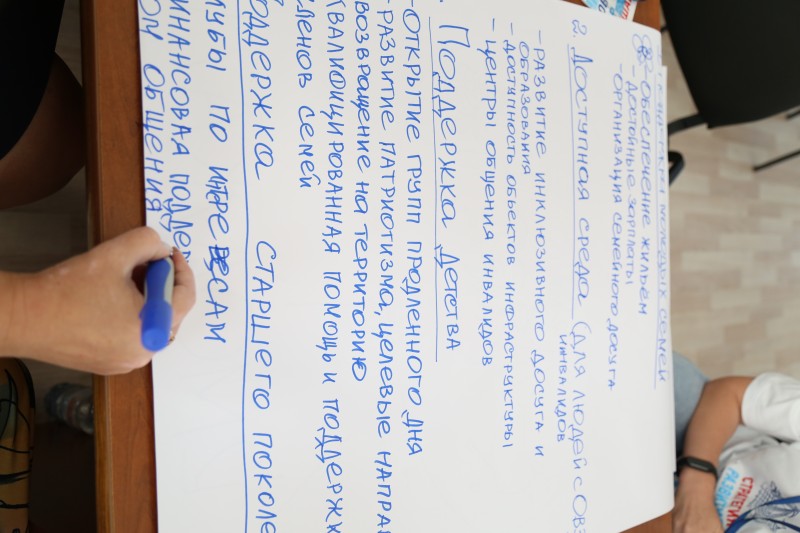 молодых семей
- Обеспечение жильём
- Достойные зарплаты
- Организация семейного досуга
2. Доступная среда (для людей с ОВЗ
инвалидов
- Развитие инклюзивного досуга и
образования
- Доступность объектов инфраструктуры
- Центры общения инвалидов
Поддержка детства
- Открытие групп продленного дня
- Развитие патриотизма, целевые направ
возвращение на территорию
квалифицированная помощь и поддержк
членов семей
оддержка старшего поколе
лубы по интересам
инансовая поддер
ом общения
СТРАТЕГИ
РАЗВИ